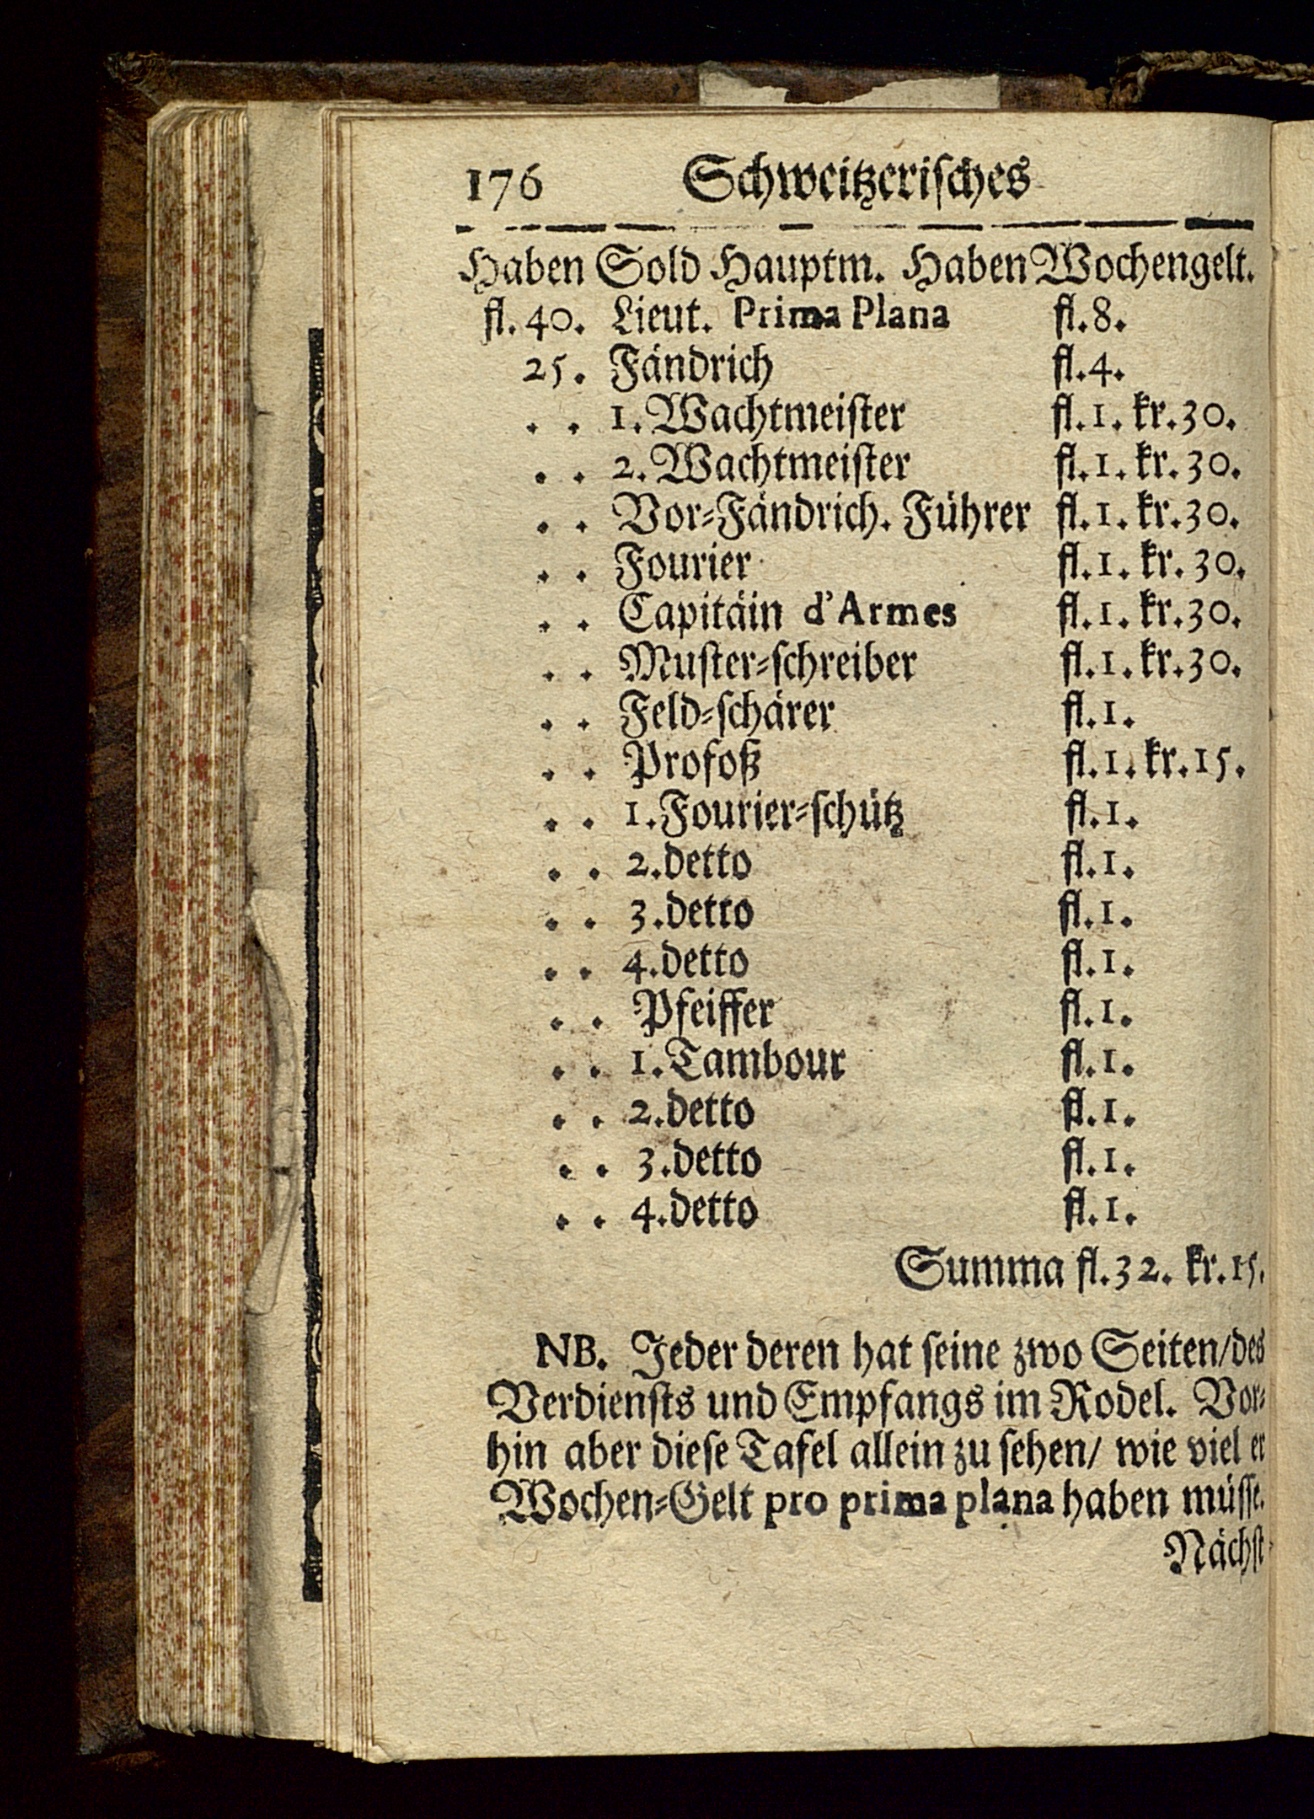 176 Schweitzerisches
Haben Sold Hauptm. Haben Wochengelt.
fl. 40. Lieut. Prima Plana fl. 8.
25. Fändrich fl. 4.
. . 1. Wachtmeister fl. 1. kr. 30.
. . 2. Wachtmeister fl. 1. kr. 30.
. . Vor-Fändrich. Führer fl. 1. kr. 30.
. . Fourier fl. 1. kr. 30.
. . Capitäin d'Armes fl. 1. kr. 30.
. . Muster-schreiber fl. 1. kr. 30.
. . Feld-schärer fl. 1.
. . Profoß fl. 1. kr. 15.
. . 1. Fourier-schütz fl. 1.
. . 2. detto fl. 1.
. . 3. detto fl. 1.
. . 4. detto fl. 1.
. . Pfeiffer fl. 1.
. . 1. Tambour fl. 1.
. . 2. detto fl. 1.
. . 3. detto fl. 1.
. . 4. detto fl. 1.
Summa fl. 32. kr. 15.
NB. Jeder deren hat seine zwo Seiten/des
Verdiensts und Empfangs im Rodel. Vor-
hin aber diese Tafel allein zu sehen/ wie viel er
Wochen-Gelt pro prima plana haben müsse.
Nächst